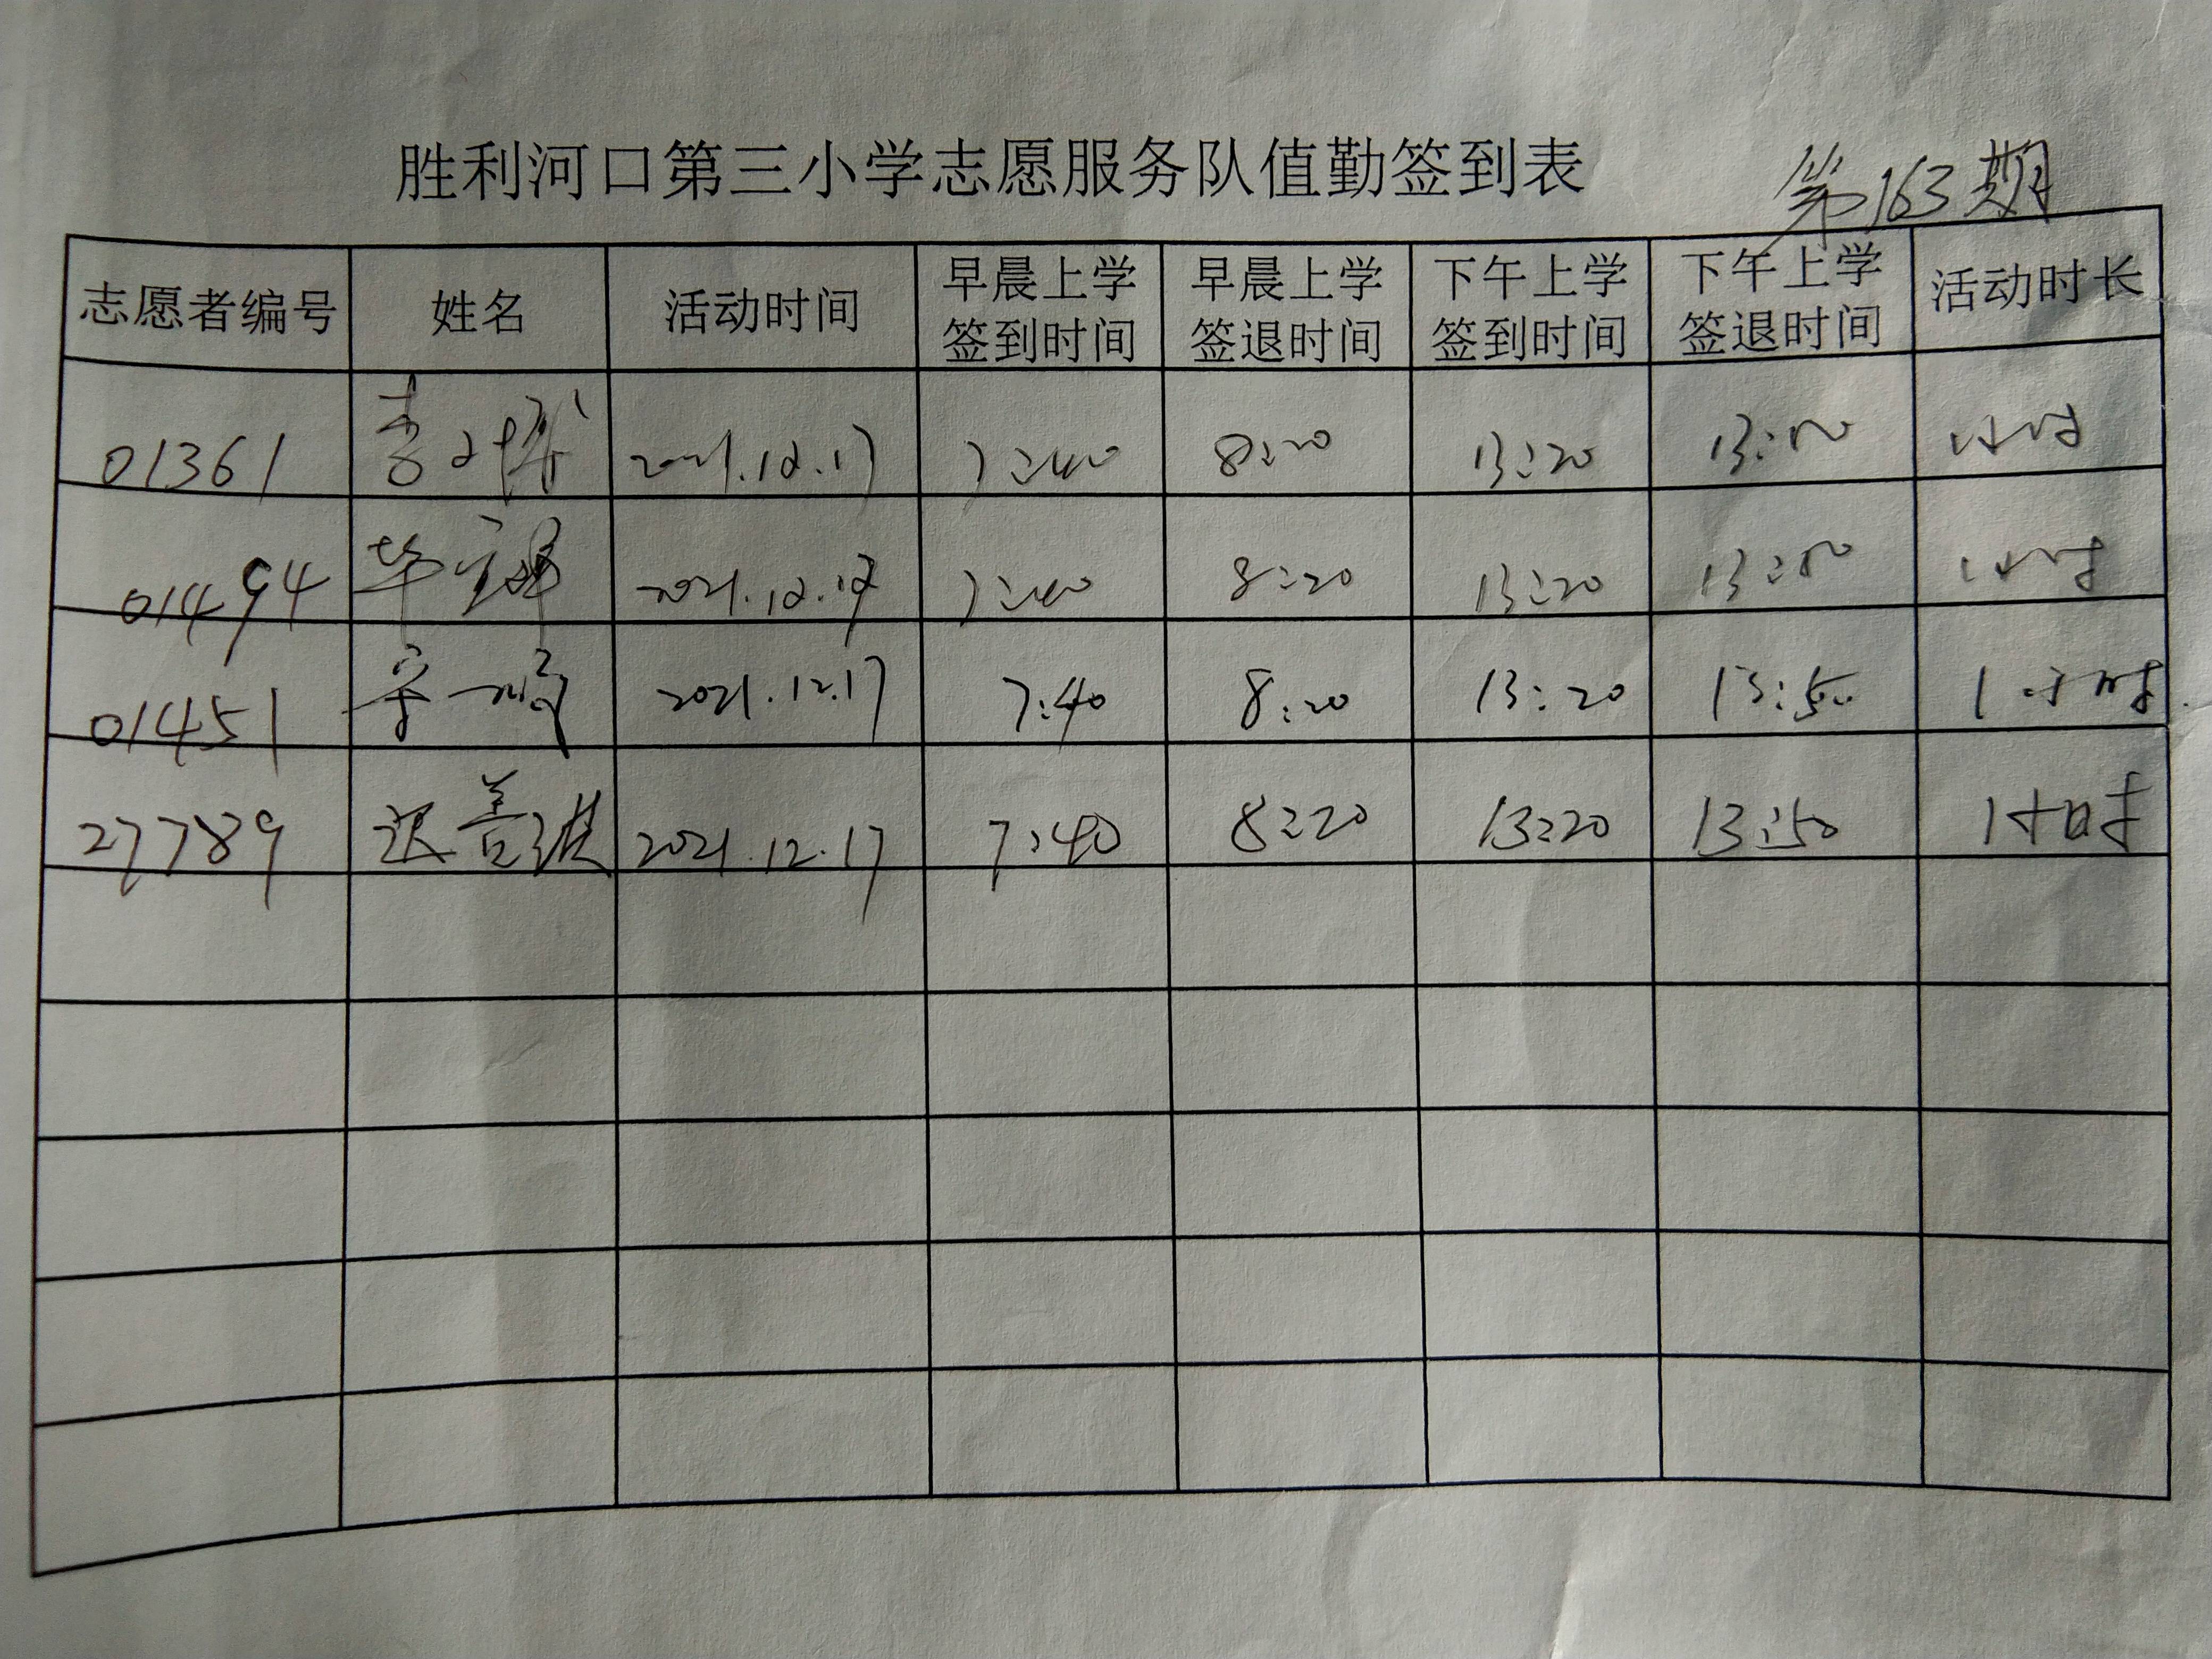 胜利河口第三小学志愿服务队值勤签到表 第163期
志愿者编号 姓名 活动时间 早晨上学签到时间 早晨上学签退时间 下午上学签到时间 下午上学签退时间 活动时长
01361 2021.12.17 7:40 8:20 13:20 13:50 1小时
01494 2021.12.17 7:40 8:20 13:20 13:50 1小时
01451 2021.12.17 7:40 8:20 13:20 13:50 1小时
27789 迟善洪 2021.12.17 7:40 8:20 13:20 13:50 1小时